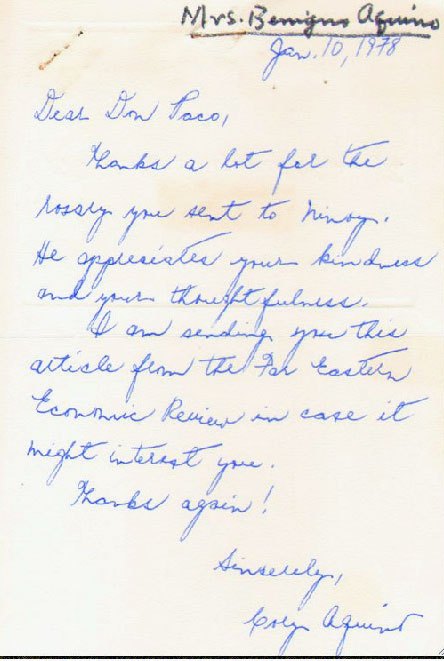 Mrs. Benigno Aquino
Jan. 10, 1978
Dear Don Paco,
Thanks a lot for the
rosary you sent to Ninoy.
He appreciates your kindness
and your thoughtfulness.
I am sending you this
article from the Far Eastern
Economic Review in case it
might interest you.
Thanks again!
Sincerely,
Cory Aquino